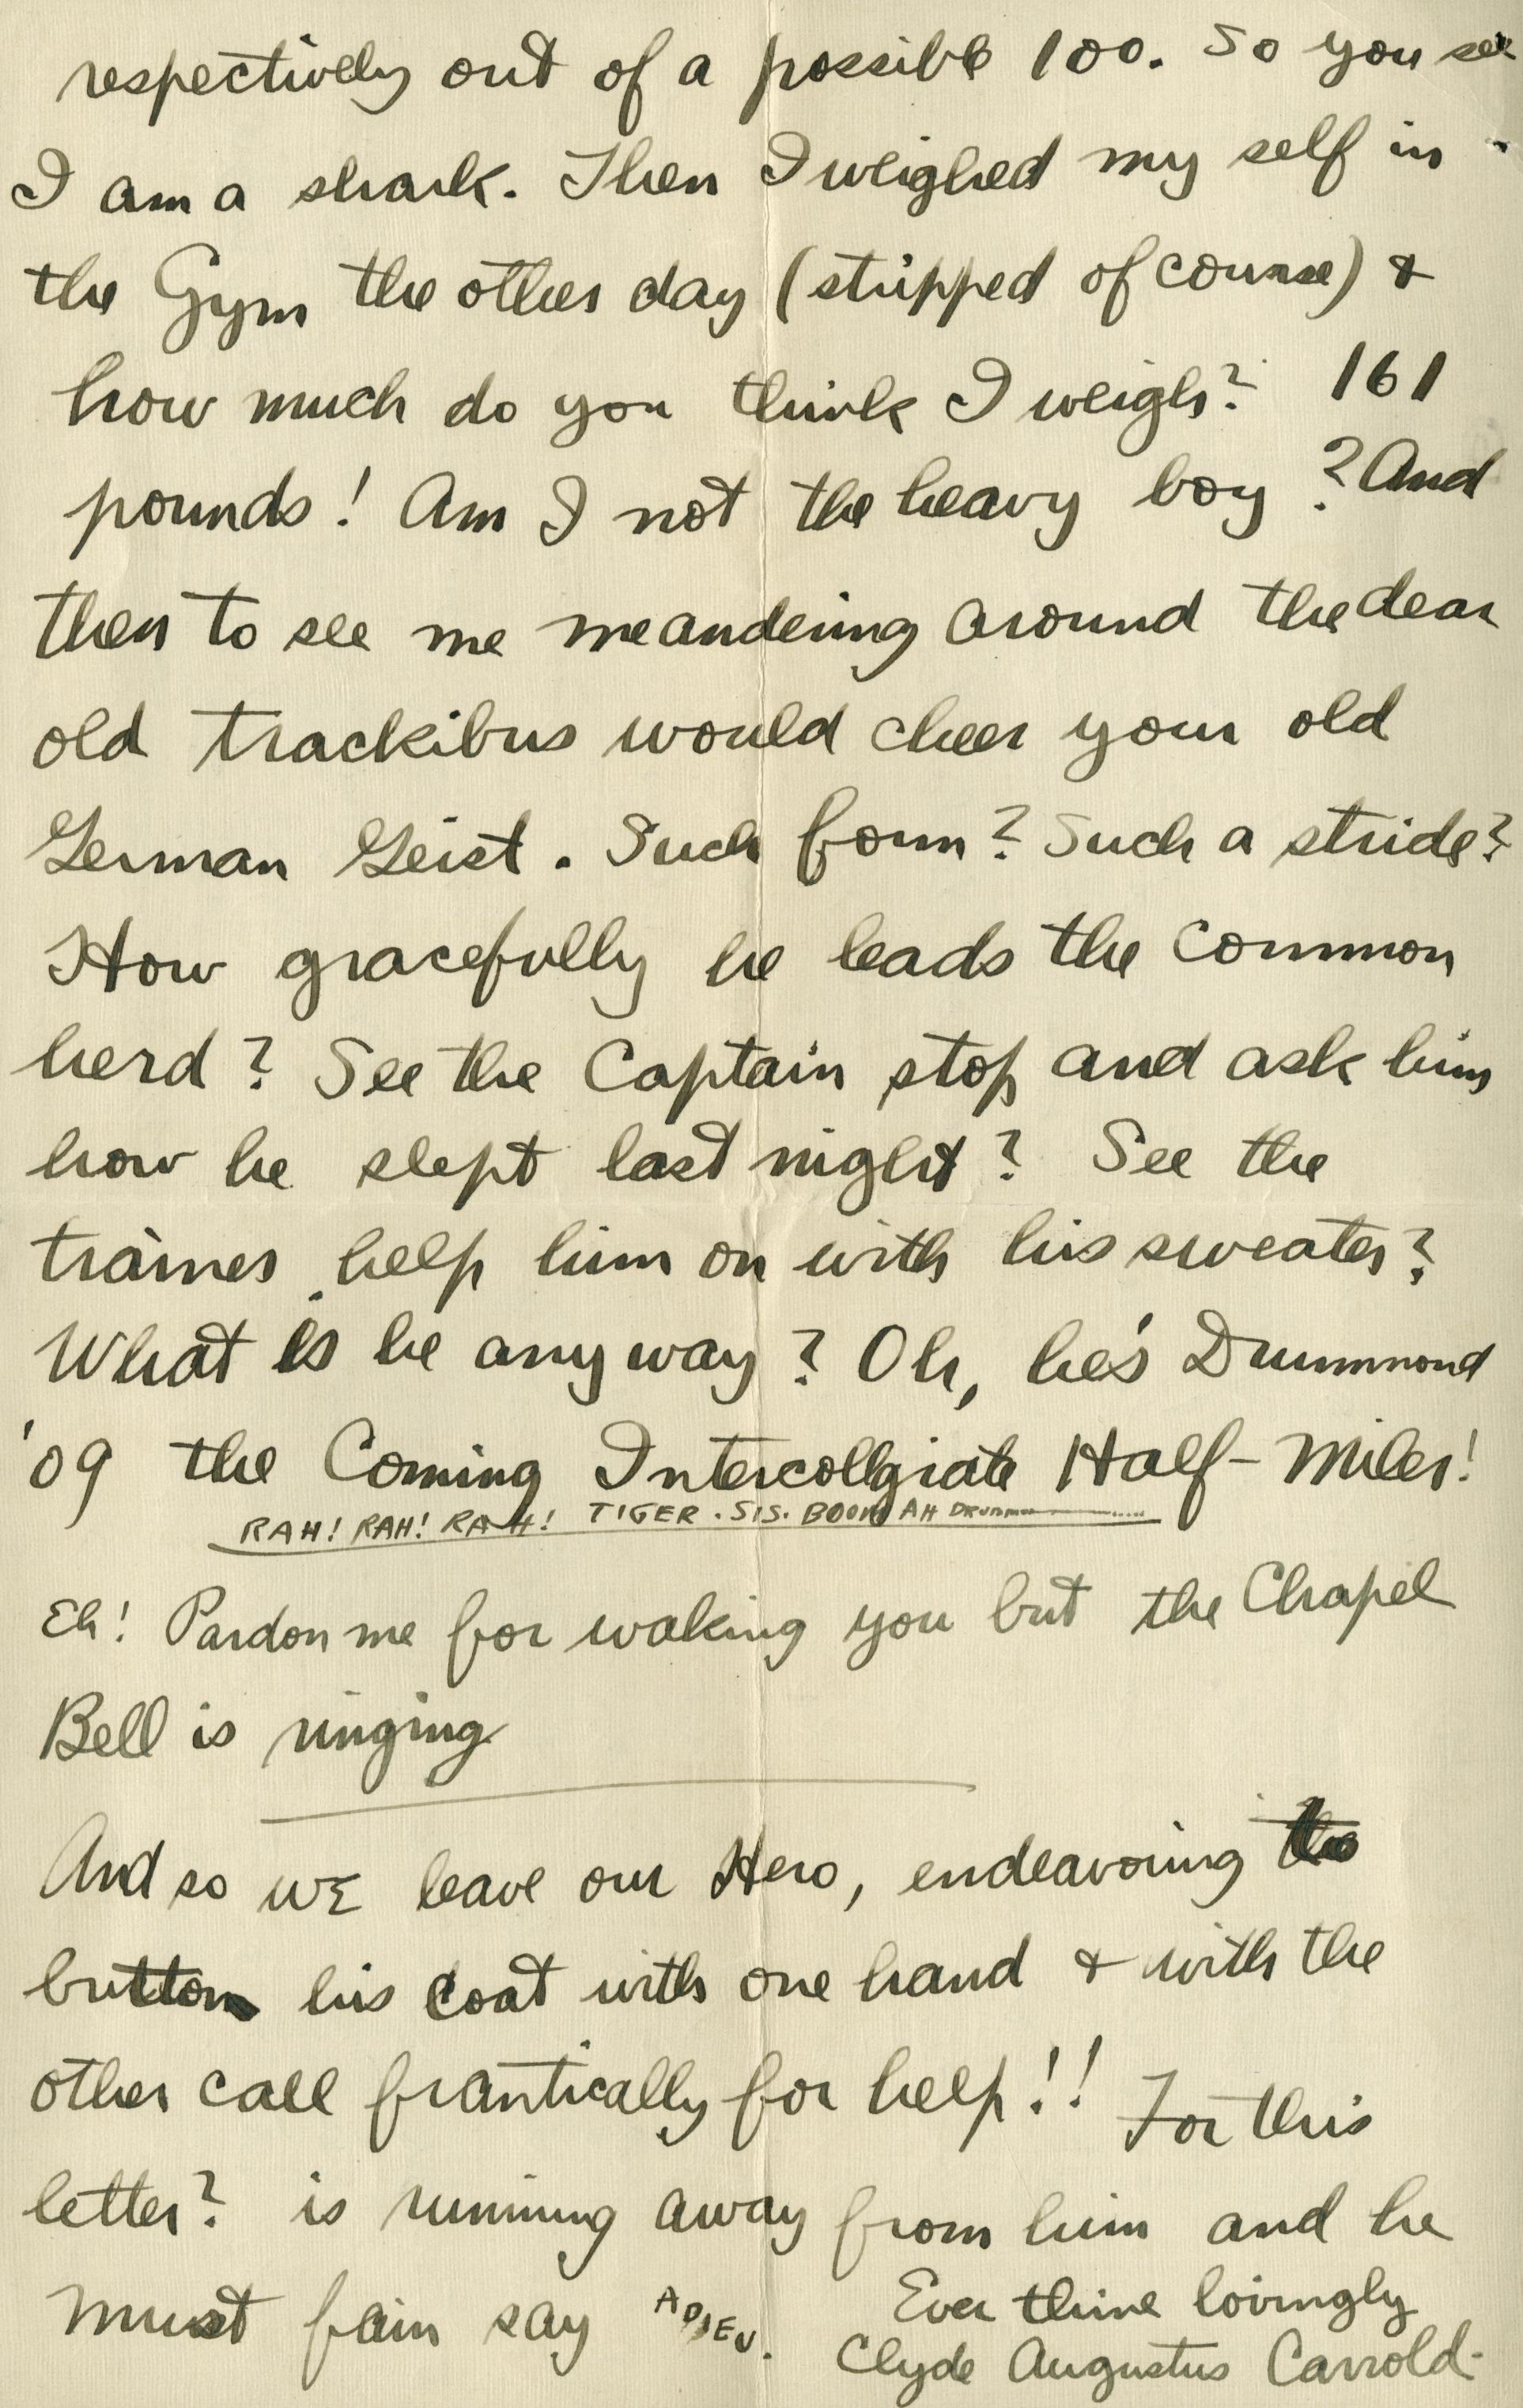 respectively out of a possible 100. So you see
I am a shark. Then I weighed my self in
the Gym the other day (stripped of course) &
how much do you think I weigh? 161
pounds! Am I not the heavy boy? And
then to see me meandering around the dear
old trackibus would cheer your old
German Geist. Such form? Such a stride?
How gracefully he leads the common
herd? See the Captain stop and ask him
how he slept last night? See the
trainer help him on with his sweater?
What is he any way? Oh, he's Drummond
'09 the Coming Intercollgiate Half-Miler!
RAH! RAH! RAH! TIGER. SIS. BOOM AH
Eh! Pardon me for waking you but the Chapel
Bell is ringing
And so we leave our Hero, endeavoring to
button his coat with one hand & with the
other call frantically for help!! For this
letter? is running away from him and he
must fain say ADIEU.
Ever thine lovingly
Clyde Augustus Carrold.